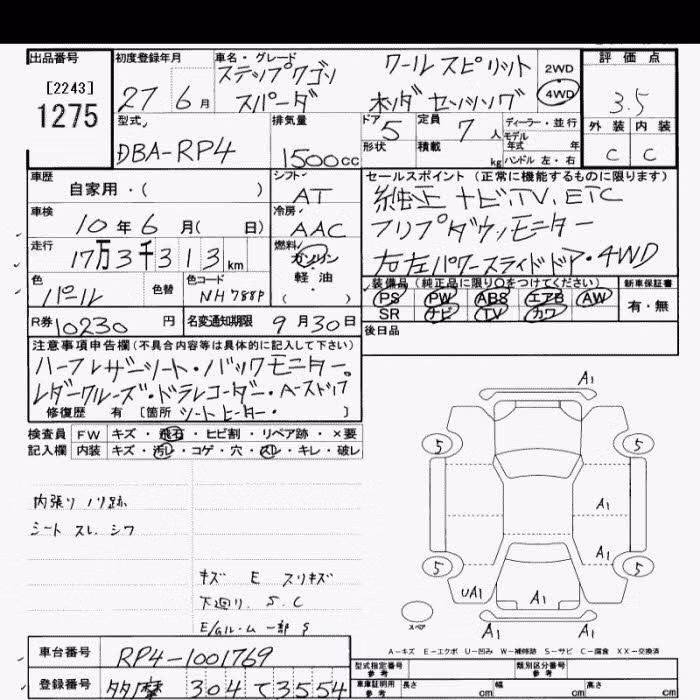 出品番号
[2243]
1275
初度登録年月
27 6月
車名・グレード
ステップワゴン クールスピリット
スパーダ ホンダセンシング
2WD
4WD
評価点
3.5
外装 内装
C C
型式
DBA-RP4
排気量
1500cc
ドア
5
形状
定員
7人
積載
kg
ディーラー・並行
モデル
年式 年
ハンドル 左・右
車歴
自家用・( )
車検
10年6月( 日)
走行
17万3千313km
色
パール
色替
色コード
NH788P
シフト
AT
冷房
AAC
燃料
ガソリン
・
軽油
( )
セールスポイント(正常に機能するものに限ります)
純正ナビ、TV、ETC
フリップダウンモニター
右左パワースライドドア・4WD
装備品(純正品に限り○をつけてください)
PS PW ABS エアB AW
SR ナビ TV カワ
新車保証書
有・無
後日品
R券 10230円
名変通知期限 9月30日
注意事項申告欄(不具合内容等は具体的に記入して下さい)
ハーフレザーシート・バックモニター。
レダークルーズ・ドラレコーダー・Aーストップ
修復歴 有 [箇所 シートヒーター・ ]
検査員 FW キズ・飛石・ヒビ割・リペア跡・×要
記入欄 内装 キズ・汚レ・コゲ・穴・スレ・キレ・破レ
内張り ノリ跡
シート スレ シワ
キズ E スリキズ
下廻り S.C
E/Gルーム 一部 S
A1
5 5
A1
A1
5 5
UA1 A1
A1 A1
スペア
A-キズ E-エクボ U-凹み W-補修跡 S-サビ C-腐食 XX-交換済
車台番号 RP4-1001769
登録番号 多摩 304 て 3554
型式指定番号 参考
類別区分番号 参考
車庫証明用 参考 長さ cm 幅 cm 高さ cm